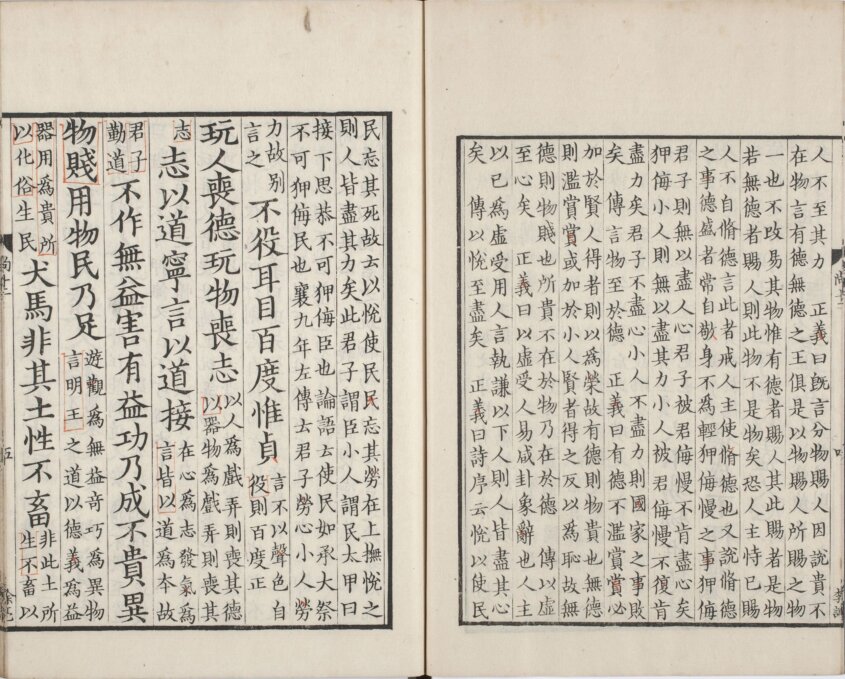 人不至其力　正義曰既言分物賜人因說貴不
在物言有德無德之王俱是以物賜人所賜之物
一也不改易其物惟有德者賜人其此賜者是物
若無德者賜人則此物不是物矣恐人主恃已賜
人不自脩德言此者戒人主使脩德也又說脩德
之事德盛者常自敬身不爲輕狎侮慢之事狎侮
君子則無以盡人心君子被君侮慢不肯盡心矣
狎侮小人則無以盡其力小人被君侮慢不復肯
盡力矣君子不盡心小人不盡力則國家之事敗
矣　傳言物至於德　正義曰有德不濫賞賞必
加於賢人得者則以爲榮故有德則物貴也無德
則濫賞賞或加於小人賢者得之反以爲恥故無
德則物賤也所貴不在於物乃在於德　傳以虛
至心矣　正義曰以虛受人易咸卦象辭也人主
以已爲虛受用人言執謙以下人則人皆盡其心
矣　傳以悅至盡矣　正義曰詩序云悅以使民
民忘其死故云以悅使民民忘其勞在上撫悅之
則人皆盡其力矣此君子謂臣小人謂民太甲曰
接下思恭不可狎侮臣也論語云使民如承大祭
不可狎侮民也襄九年左傳云君子勞心小人勞
力故別言之　不役耳目百度惟貞　言不以聲色自役則百度正
玩人喪德玩物喪志　以人爲戲弄則喪其德以器物爲戲弄則喪其
志　志以道寧言以道接　在心爲志發氣爲言皆以道爲本故
君子勤道　不作無益害有益功乃成不貴異
物賤用物民乃足　遊觀爲無益奇巧爲異物言明王之道以德義爲益
器用爲貴所以化俗生民　犬馬非其土性不畜　非此土所生不畜以
五